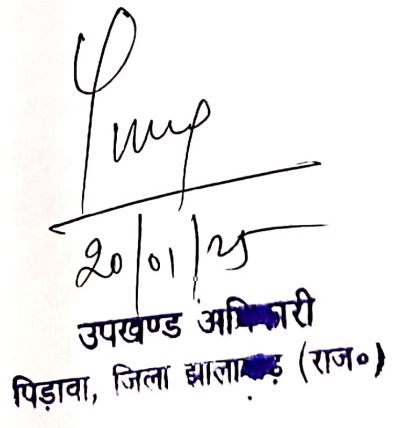 20/01/25
उपखण्ड अधिकारी
पिड़ावा, जिला झालावाड़ (राज०)